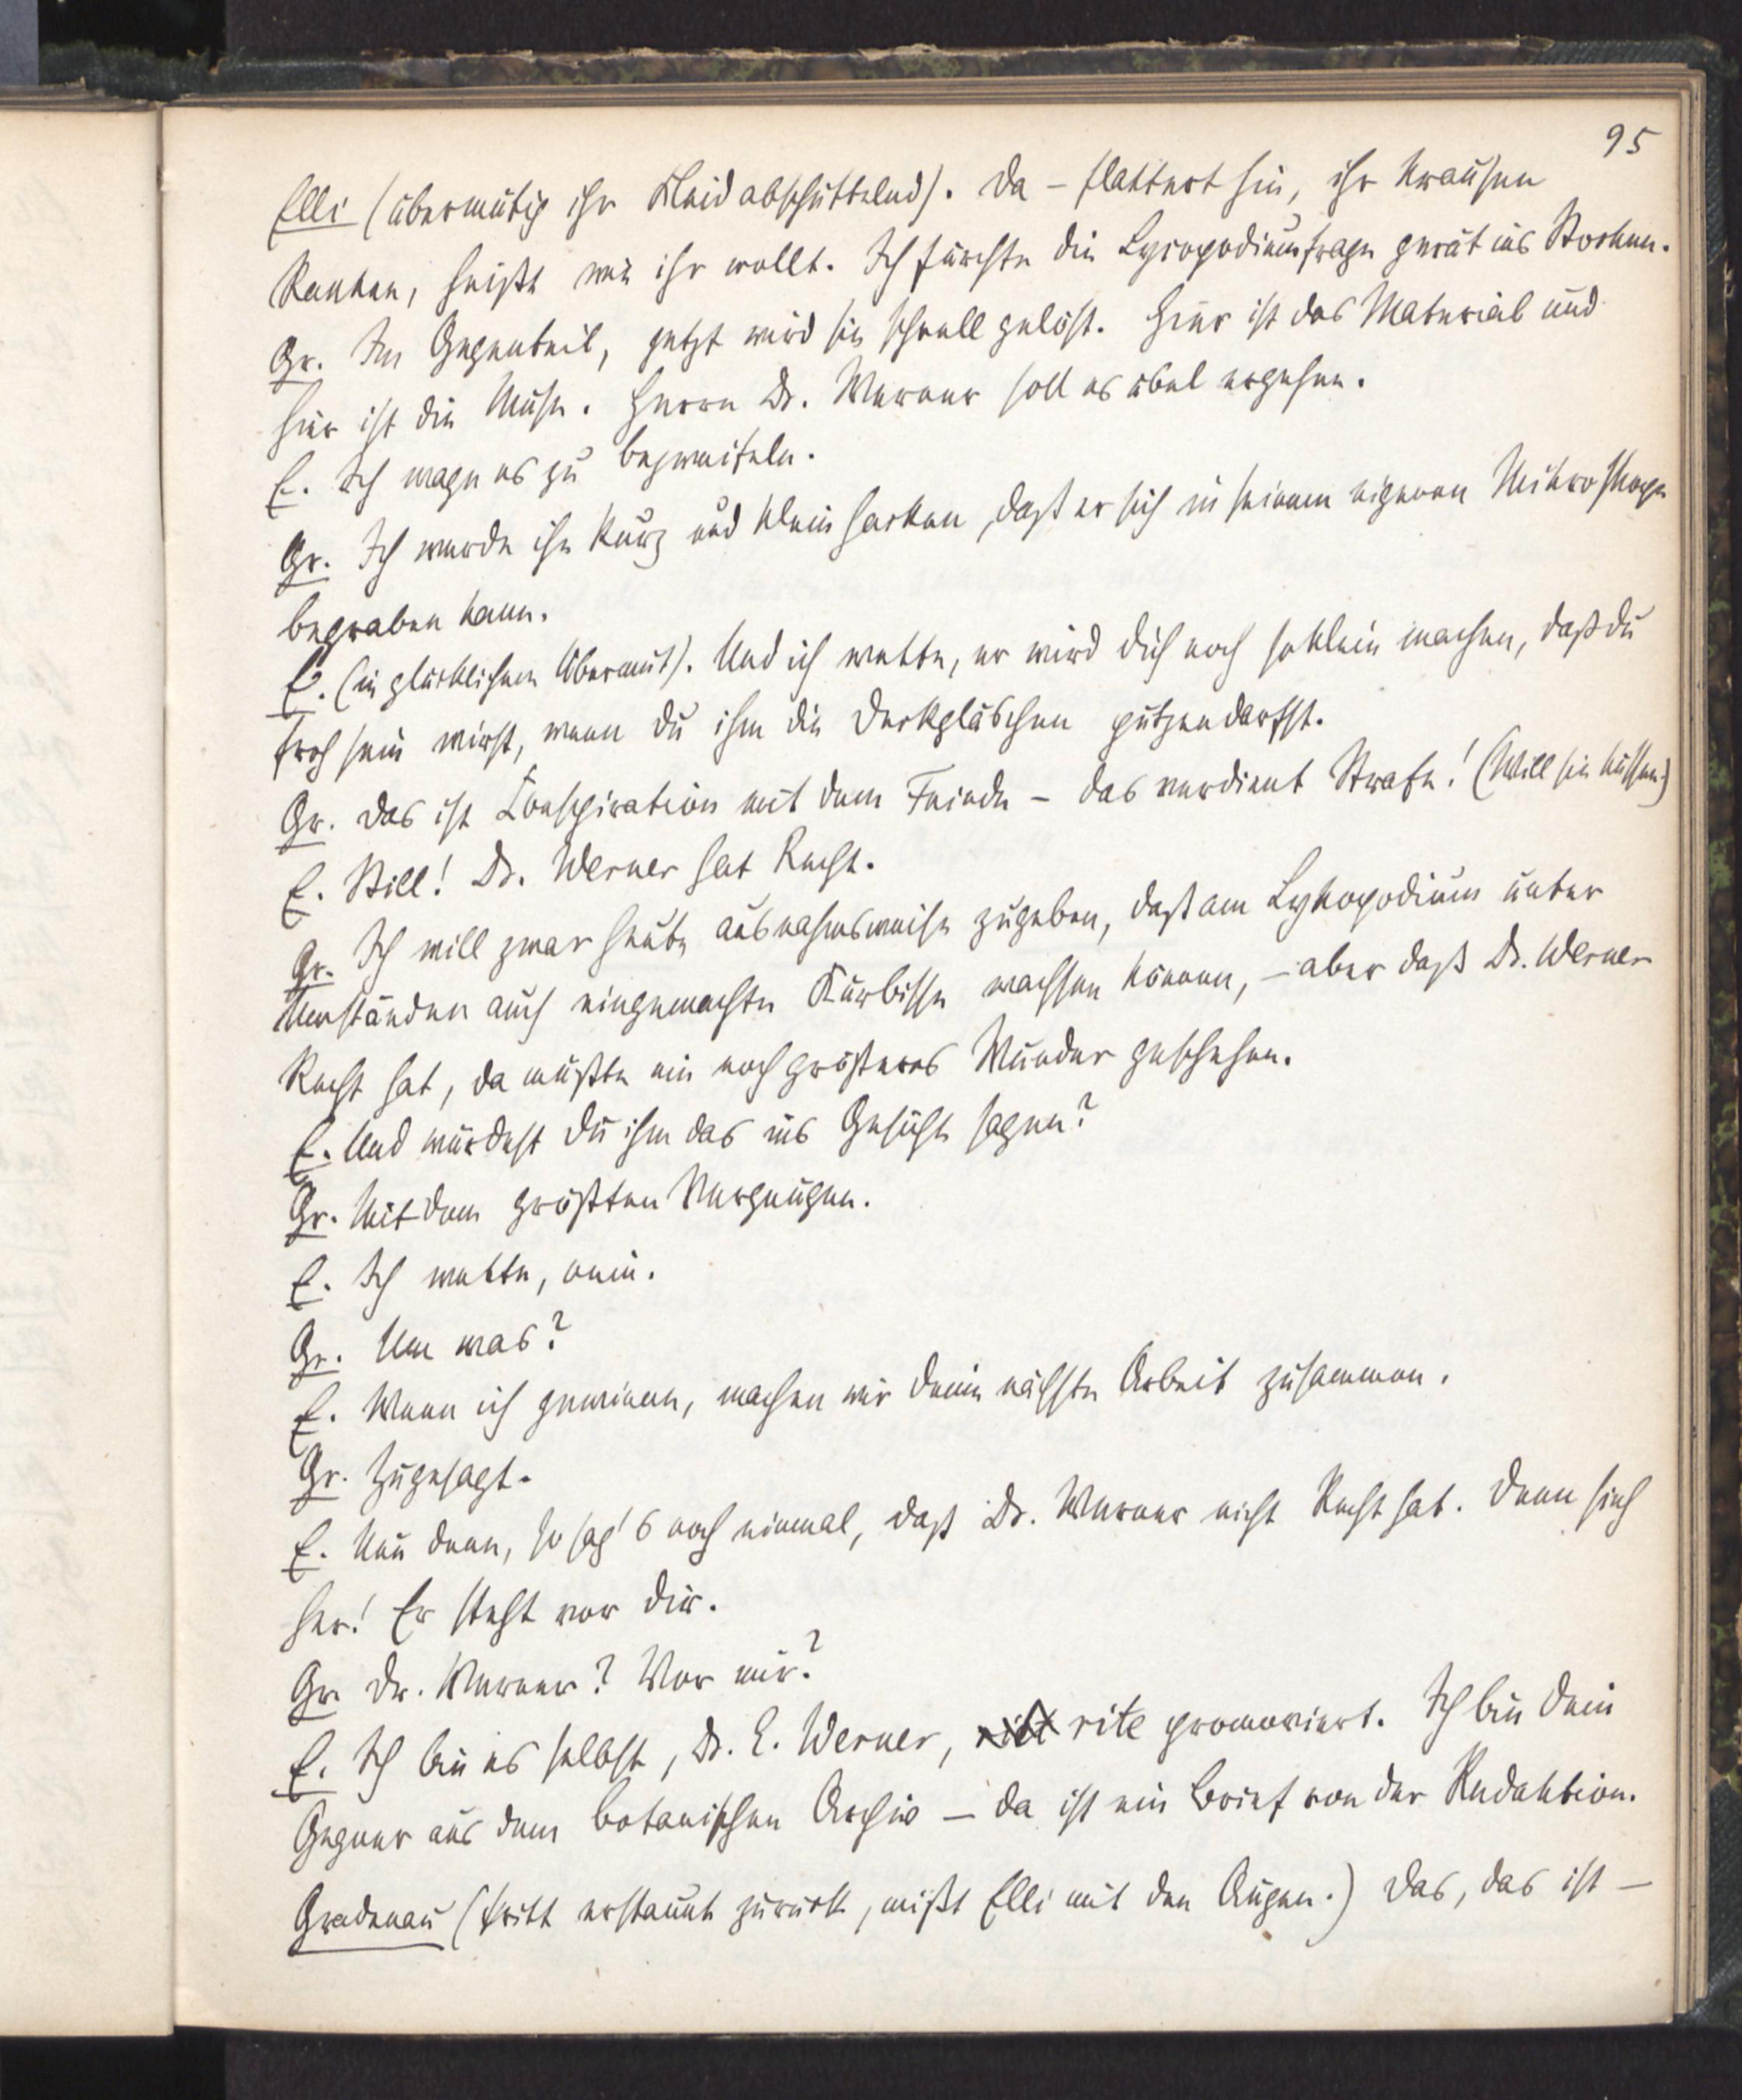 95
Elli (übermütig ihr Kleid abschüttelnd). Da – flattert hin, ihr krausen
Ranken, heißt wie ihr wollt. Ich fürchte die Lycopodiumfrage gerät ins Stocken.
Gr. Im Gegenteil, jetzt wird sie schnell gelöst. Hier ist das Material und
hier ist die Muse. Herrn Dr. Werner soll es übel ergehen.
E. Ich wage es zu bezweifeln.
Gr. Ich werde ihn kurz und klein hacken, daß er sich in seinem eigenen Mikroskope
begraben kann.
E. (in glücklichem Übermut). Und ich wette, er wird dich noch so klein machen, daß du
froh sein wirst, wenn du ihm die Deckgläschen putzen darfst.
Gr. Das ist Conspiration mit dem Feinde – das verdient Strafe! (Will sie küssen.)
E. Still! Dr. Werner hat Recht.
Gr. Ich will zwar heute ausnahmsweise zugeben, daß am Lykopodium unter
Umständen auch eingemachte Kürbisse wachsen können, – aber daß Dr. Werner
Recht hat, da müßte ein noch größeres Wunder geschehen.
E. Und würdest du ihm das ins Gesicht sagen?
Gr. Mit dem größten Vergnügen.
E. Ich wette, nein.
Gr. Um was?
E. Wenn ich gewinne, machen wir deine nächste Arbeit zusammen.
Gr. Zugesagt.
E. Nun denn, so sag's noch einmal, daß Dr. Werner nicht Recht hat. Denn sieh
her! Er steht vor dir.
Gr. Dr. Werner? Vor mir?
E. Ich bin es selbst, Dr. E. Werner, rite promoviert. Ich bin dein
Gegner aus dem botanischen Archiv – da ist ein Brief von der Redaktion.
Gradenau (tritt erstaunt zurück, mißt Elli mit den Augen.) Das, das ist –